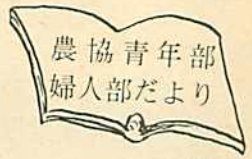 農協青年部
婦人部だより